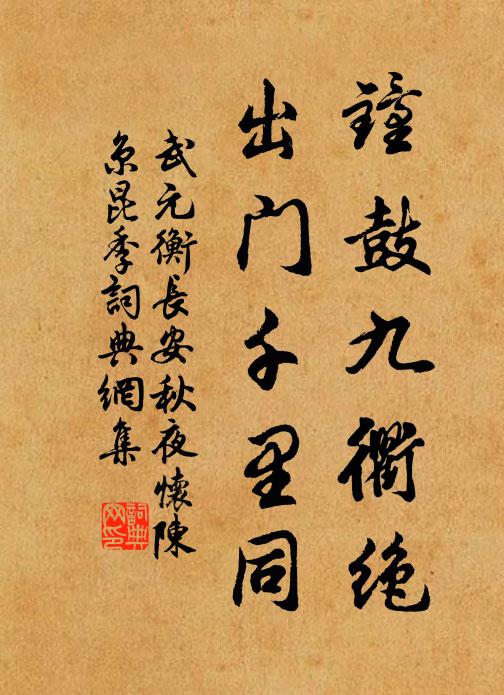 鐘鼓九衢絶
出門千里同
武元衡長安秋夜懷陳
京昆季詞典網集
詞典网印